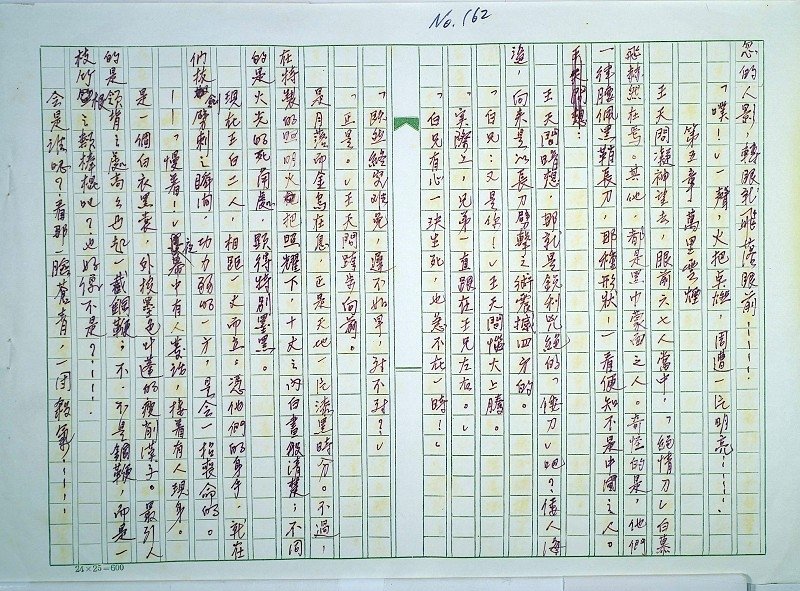 No.162
忽的人影,轉眼就飛落眼前……
「噗!」一聲,火把点燃,周遭一片明亮……
第五章 萬里雲煙
王天問凝神望去,眼前六七人當中,「絕情刀」白慕
飛赫然在焉。其他,都是黑巾蒙面之人。奇怪的是,他們
一律腰佩黑鞘長刀,那種形狀,一看便知不是中國之人。
王天問暗想,那就是銳利兇絕的「倭刀」吧?倭人海
盜,向來是以長刀劈擊之術震撼四方的。
「白兄:又是你!」王天問惱火上騰。
「實際上,兄弟一直跟在王兄左右。」
「白兄有心一決生死,也急不在一時!」
「既然終究難免,遲不如早,對不對?」
「正是。」王天問踏步向前。
是月落而金烏在息,正是天地一片漆黑時分。不過,
在特製的照明火把照耀下,十丈之內白晝般清楚;不同
的是火光的死角處,顯得特別墨黑。
現在王白二人,相距一丈而立。憑他們的身手,就在
們拔劍劈刺之瞬間,功力弱的一方,是會一招喪命的。
——「慢着!」夜幕中有人發話,接着有人現身。
是一個白衣黑裳,外披墨色斗蓬的瘦削漢子。最引人
的是領背之處高高弓起一截鋼鞭。不,不是鋼鞭,而是一
枝竹根之類棒棍吧?也好像不是?……
会是誰呢?看那一臉蒼青,一團殺氣……,
24×25=600